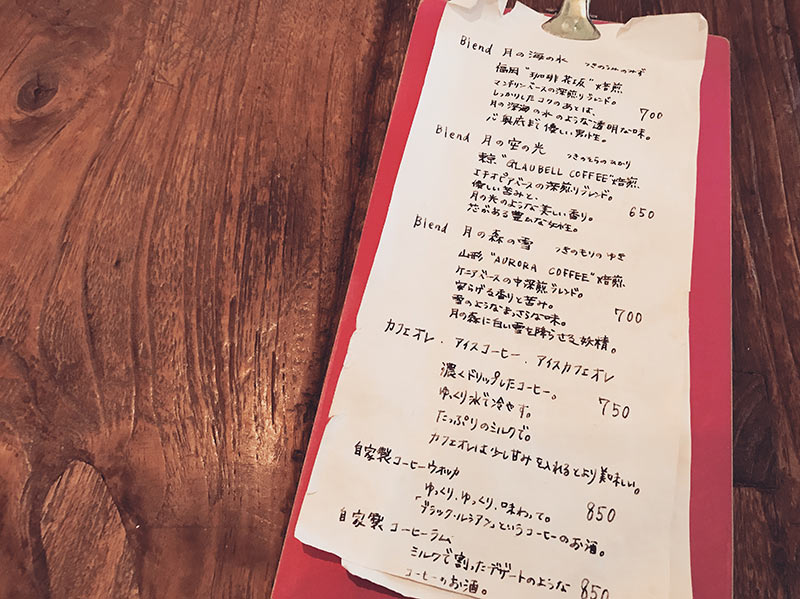 Blend 月の海の水 つきのうみのみず
福岡 "珈琲花坂" 焙煎
マンデリンベースの深煎りブレンド。
しっかりしたコクのあとは、 700
月の深海の水のような透明な味。
心奥底まで優しい男性。
Blend 月の空の光 つきのそらのひかり
東京 "GLAUBELL COFFEE" 焙煎
エチオピアベースの深煎りブレンド。
優しい苦みと、
月の光のような美しい香り。 650
芯がある豊かな女性。
Blend 月の森の雪 つきのもりのゆき
山形 "AURORA COFFEE" 焙煎
ケニアベースの中深煎ブレンド。
安らげる香りと苦み。
雪のようなまっさらな味。 700
月の森に白い雪を降らせる妖精。
カフェオレ・アイスコーヒー・アイスカフェオレ
濃くドリップしたコーヒー。
ゆっくり氷で冷やす。 750
たっぷりのミルクで。
カフェオレは少し甘みを入れるとより美味しい。
自家製コーヒーウォッカ
ゆっくり、ゆっくり、味わって。 850
「ブラック・ルシアン」というコーヒーのお酒。
自家製 コーヒーラム
ミルクで割ったデザートのような 850
コーヒーのお酒。